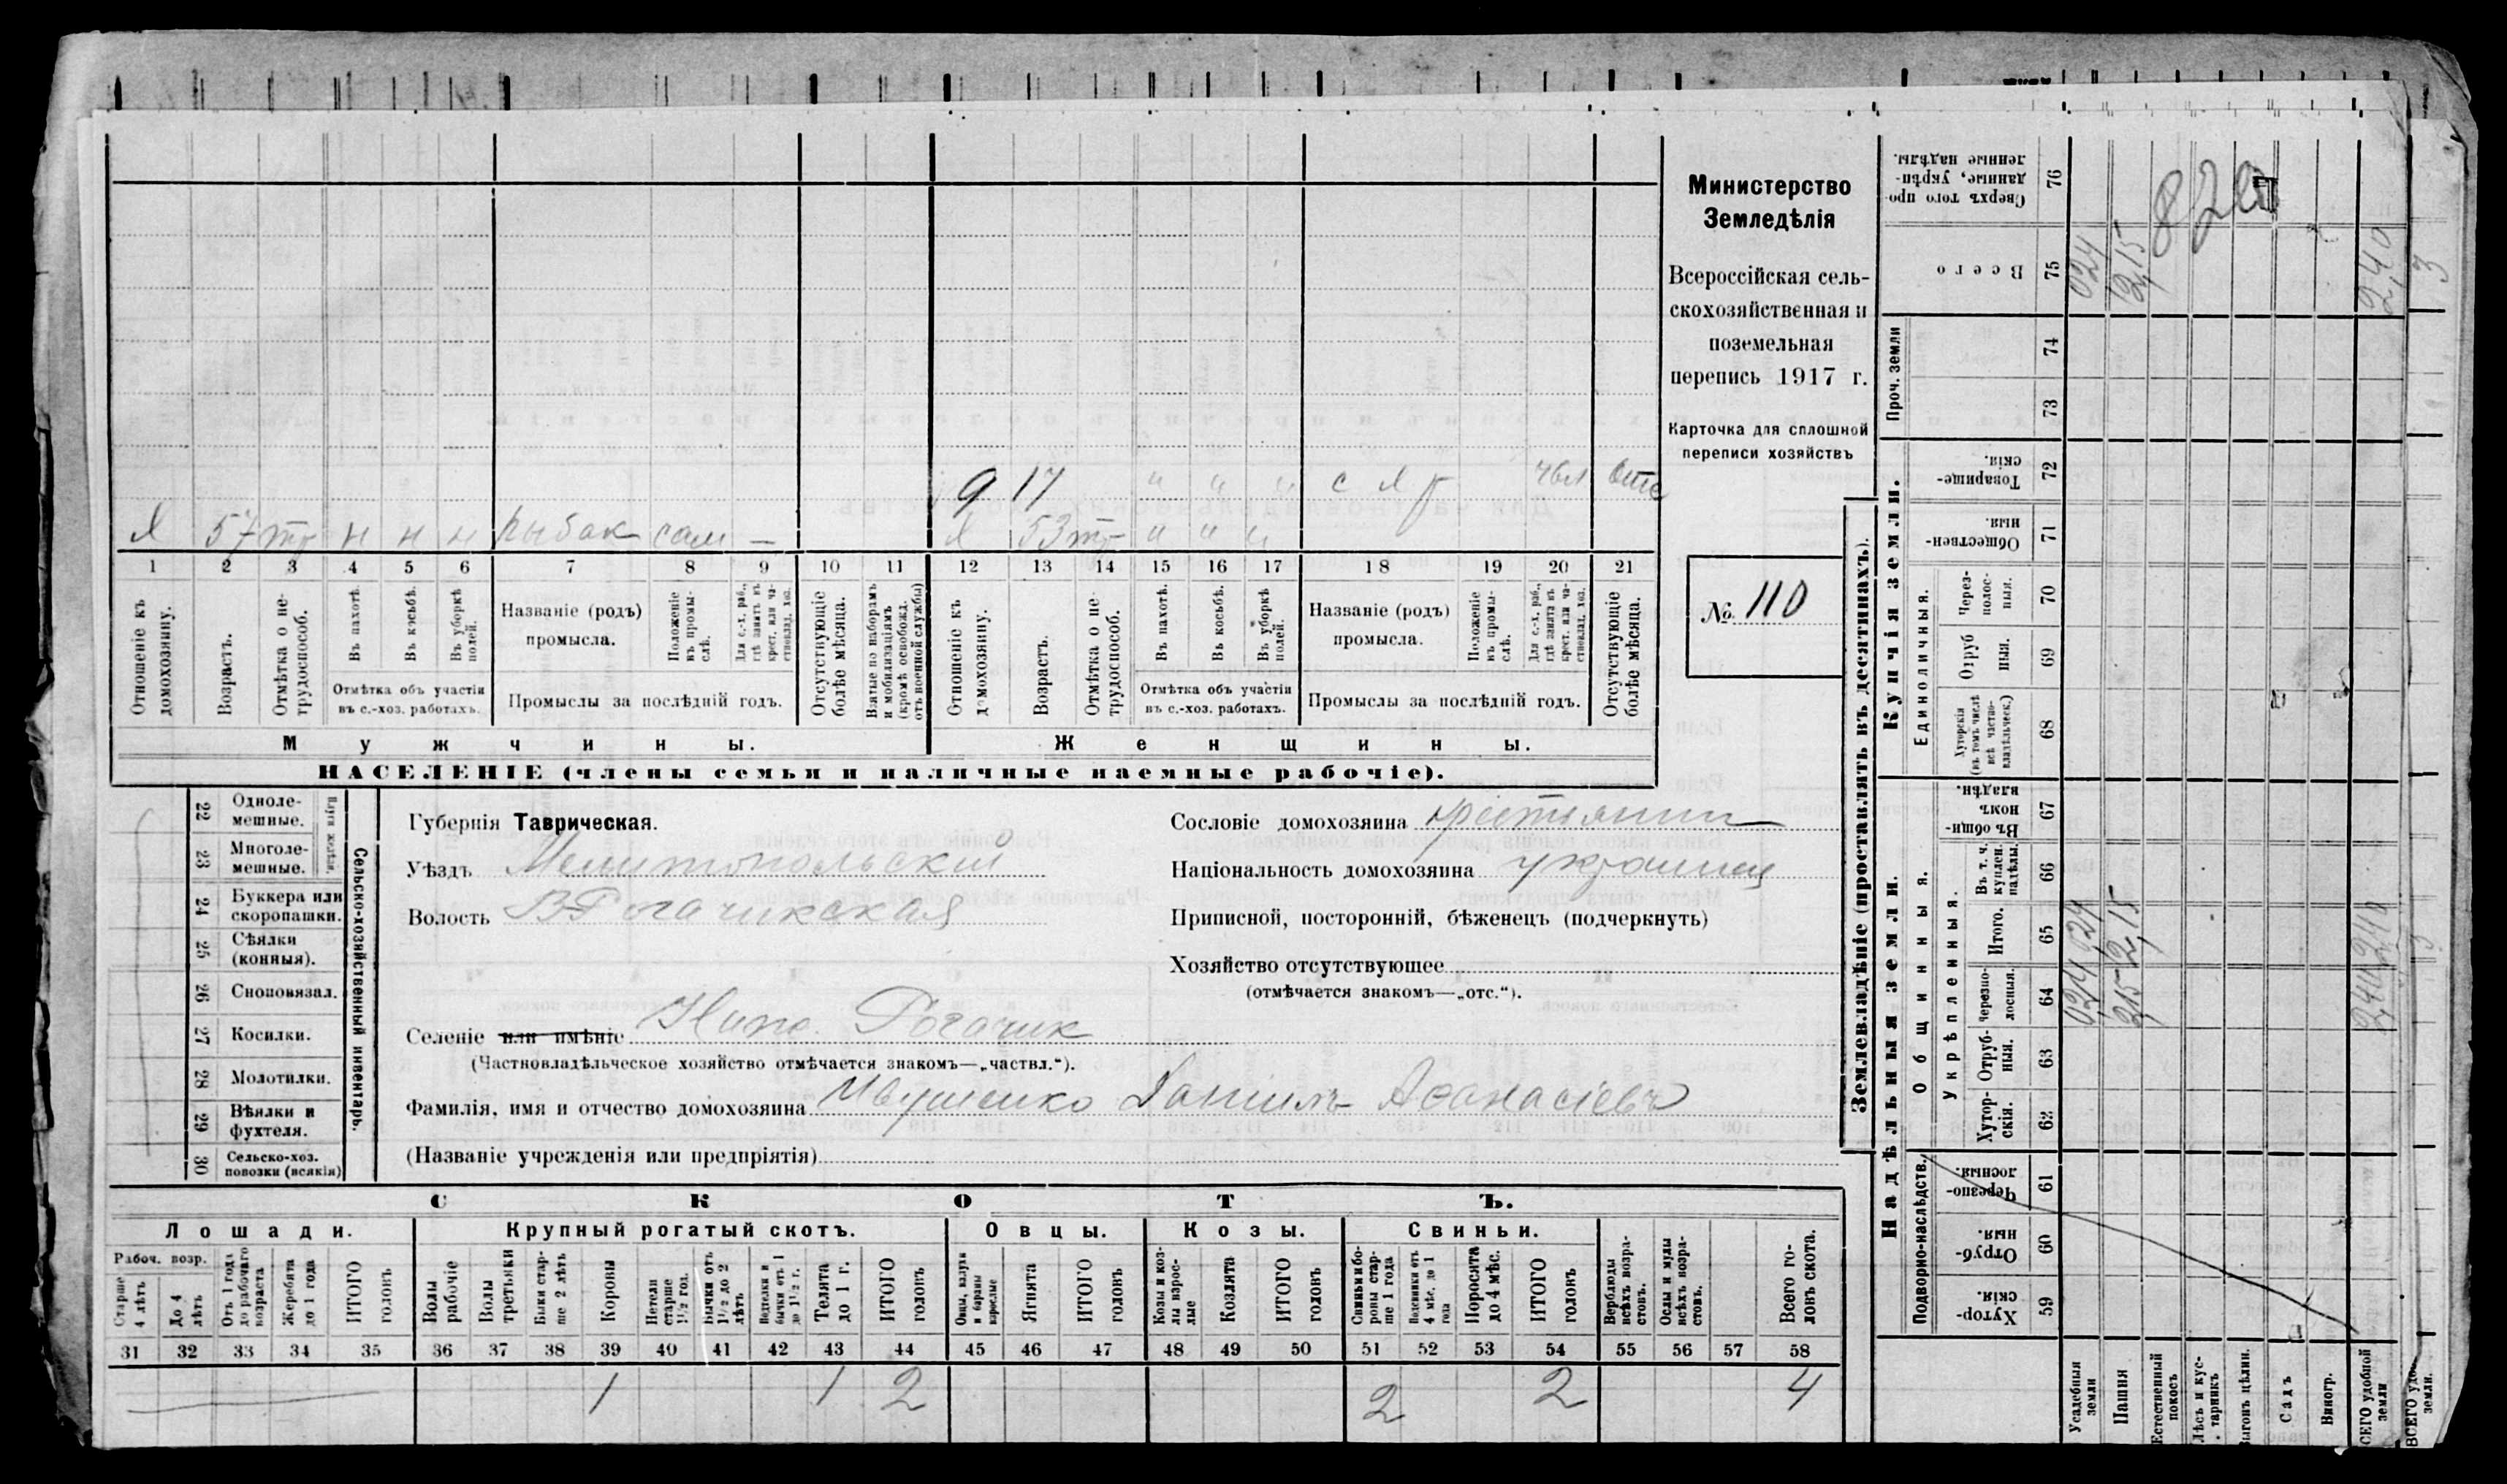 9 17 " " " с х р чвл Отс
Х 57 тр н н н рыбак сам — Х 53 тр " " "
1 2 3 4 5 6 7 8 9 10 11 12 13 14 15 16 17 18 19 20 21
Отношеніе къ домохозяину.
Возрастъ.
Отмѣтка о нетрудоспособ.
Въ пахотѣ.
Въ косьбѣ.
Въ уборкѣ полей.
Отмѣтка объ участіи
въ с.-хоз. работахъ.
Названіе (родъ)
промысла.
Положеніе въ промыслѣ.
Для с.-х. раб., гдѣ занятъ въ крест. или частновлад. хоз.
Промыслы за послѣдній годъ.
Отсутствующіе болѣе мѣсяца.
Взятые по наборамъ и мобилизаціямъ (кромѣ освобожд. отъ военной службы)
Отношеніе къ домохозяину.
Возрастъ.
Отмѣтка о нетрудоспособ.
Въ пахотѣ.
Въ косьбѣ.
Въ уборкѣ полей.
Отмѣтка объ участіи
въ с.-хоз. работахъ.
Названіе (родъ)
промысла.
Положеніе въ промыслѣ.
Для с.-х. раб., гдѣ занята въ крест. или частновлад. хоз.
Промыслы за послѣдній годъ.
Отсутствующіе болѣе мѣсяца.
Мужчины. Женщины.
НАСЕЛЕНІЕ (члены семьи и наличные наемные рабочіе).
Министерство
Земледѣлія
Всероссійская сель-
скохозяйственная и
поземельная
перепись 1917 г.
Карточка для сплошной
переписи хозяйствъ
№ 110
Сельско-хозяйственный инвентарь.
22 Одноле-
мешные.
23 Многоле-
мешные.
24 Буккера или
скоропашки.
25 Сѣялки
(конныя).
26 Сноповязал.
27 Косилки.
28 Молотилки.
29 Вѣялки и
фухтеля.
30 Сельско-хоз.
повозки (всякія)
Губернія Таврическая.
Уѣздъ Мелитопольскій
Волость ВРогачикская
Селеніе или имѣніе Нижо. Рогачик
(Частновладѣльческое хозяйство отмѣчается знакомъ—„частвл.“).
Фамилія, имя и отчество домохозяина Ивушенко Даніилъ Афанасіевъ
(Названіе учрежденія или предпріятія)
Сословіе домохозяина крестьянин
Національность домохозяина украинец
Приписной, посторонній, бѣженецъ (подчеркнуть)
Хозяйство отсутствующее
(отмѣчается знакомъ—„отс.“).
СКОТЪ.
Лошади. Крупный рогатый скотъ. Овцы. Козы. Свиньи.
Рабоч. возр.
Старше 4 лѣтъ
До 4 лѣтъ
Отъ 1 года до рабочаго возраста
Жеребята до 1 года
ИТОГО головъ
Волы рабочіе
Волы третьяки
Быки старше 2 лѣтъ
Коровы
Нетели старше 1½ год.
Бычки отъ 1½ до 2 лѣтъ
Подтелки и бычки отъ 1 до 1½ г.
Телята до 1 г.
ИТОГО головъ
Овцы, валухи и бараны взрослые
Ягнята
ИТОГО головъ
Козы и козлы взрослые
Козлята
ИТОГО головъ
Свиньи и боровы старше 1 года
Подсвинки отъ 4 мѣс. до 1 года
Поросята до 4 мѣс.
ИТОГО головъ
Верблюды всѣхъ возрастовъ.
Ослы и мулы всѣхъ возрастовъ.
Всего головъ скота.
31 32 33 34 35 36 37 38 39 40 41 42 43 44 45 46 47 48 49 50 51 52 53 54 55 56 57 58
1 1 2 2 2 4
Землевладѣніе (проставлять въ десятинахъ).
Купчія земли.
Надѣльныя земли.
Проч. земли
Сверхъ того проданные, укрѣпленные надѣлы. 76
Всего 75 024 2,15 2,40
820
74
73
Товарищескія. 72
Общественныя. 71
Единоличныя.
Черезполосныя. 70
Отрубныя. 69
Хуторскія (въ томъ числѣ всѣ частновладѣльческ.) 68
Общинныя.
Въ общинномъ владѣн. 67
Укрѣпленныя.
Въ т. ч. куплен. надѣлы. 66
Итого. 65 024 2,15 2,40
Черезполосныя. 64 024 2,15 2,40
Отрубныя. 63
Хуторскія. 62
Подворно-наслѣдств.
Черезполосныя. 61
Отрубныя. 60
Хуторскія. 59
Усадебныя земли
Пашня
Естественный покосъ
Лѣсъ и кустарникъ
Выгонъ цѣлин.
Садъ
Виногр.
ВСЕГО удобной земли
ВСЕГО удо
земли.
3